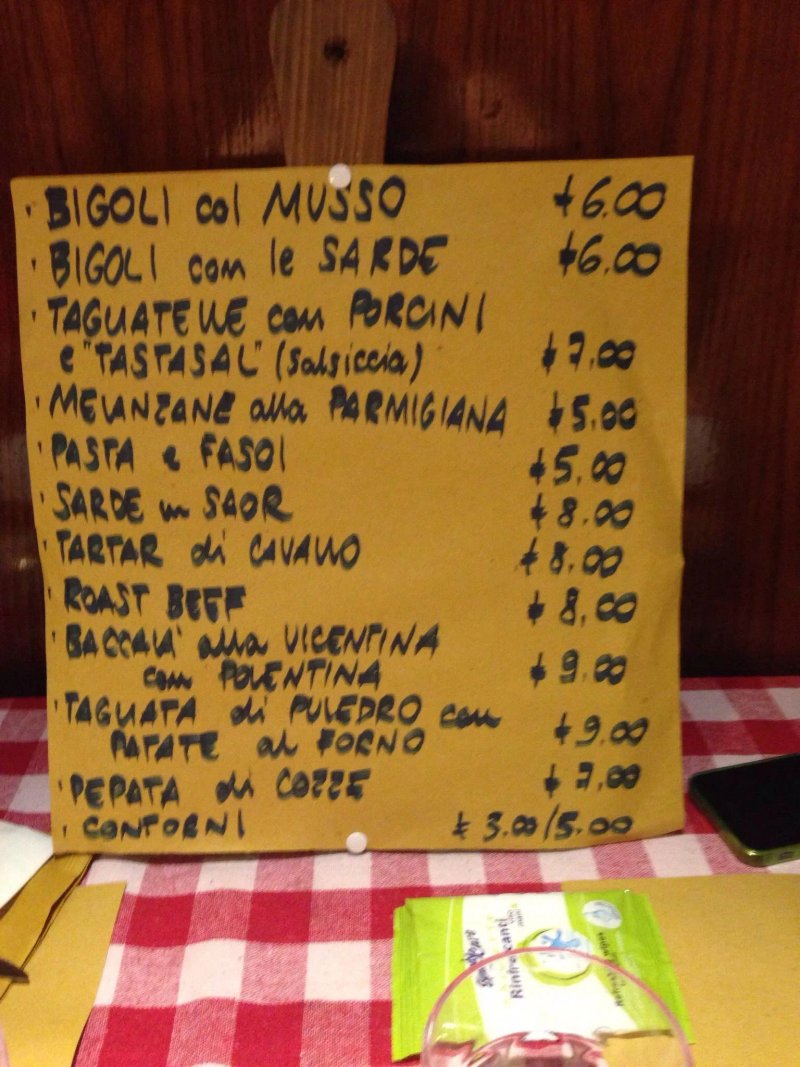 · BIGOLI col MUSSO € 6.00
· BIGOLI con le SARDE € 6.00
· TAGLIATELLE con PORCINI
e "TASTASAL" (salsiccia) € 7.00
· MELANZANE alla PARMIGIANA € 5.00
· PASTA e FASOI € 5.00
· SARDE in SAOR € 8.00
· TARTAR di CAVALLO € 8.00
· ROAST BEEF € 8.00
· BACCALA' alla VICENTINA
con POLENTINA € 9.00
· TAGLIATA di PULEDRO con
PATATE al FORNO € 9.00
· PEPATA di COZZE € 7.00
· CONTORNI € 3.00/5.00
Rinfrescanti